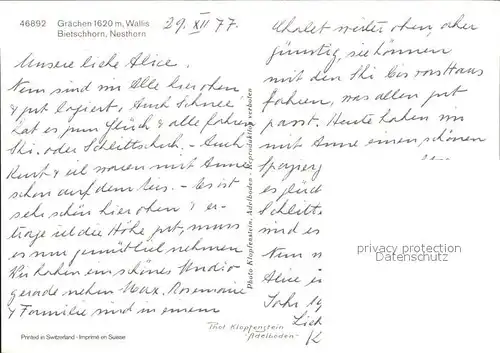 46892 Grächen 1620 m, Wallis
Bietschhorn, Nesthorn
29. XII 77.
Unsere liebe Alice.
Nun sind wir Alle hier oben
& gut logiert. Auch Schnee
hat es zum Glück & alle fahren
Ski. oder Schlittschuh. – Auch
Kurt & ich waren mit Anne
schon auf dem Eis. – Es ist
sehr schön hier oben & er-
trage ich die Höhe gut, muss
es nur gemütlich nehmen
Wir haben ein schönes Studio
gerade neben Max. Rosemarie
& Familie sind in einem
Printed in Switzerland - Imprimé en Suisse
Photo Klopfenstein, Adelboden - Reproduktion verboten
Chalet weiter oben, aber
günstig, sie können
mit den Ski bis vors Haus
fahren, was allen gut
passt. Heute haben wir
mit Anne einen schönen
es glüc
Schlitte
sind es
Nun
Alice
Jahr
Privacy protection
www.ansichtskarten-center.de
Phot Klopfenstein
Adelboden